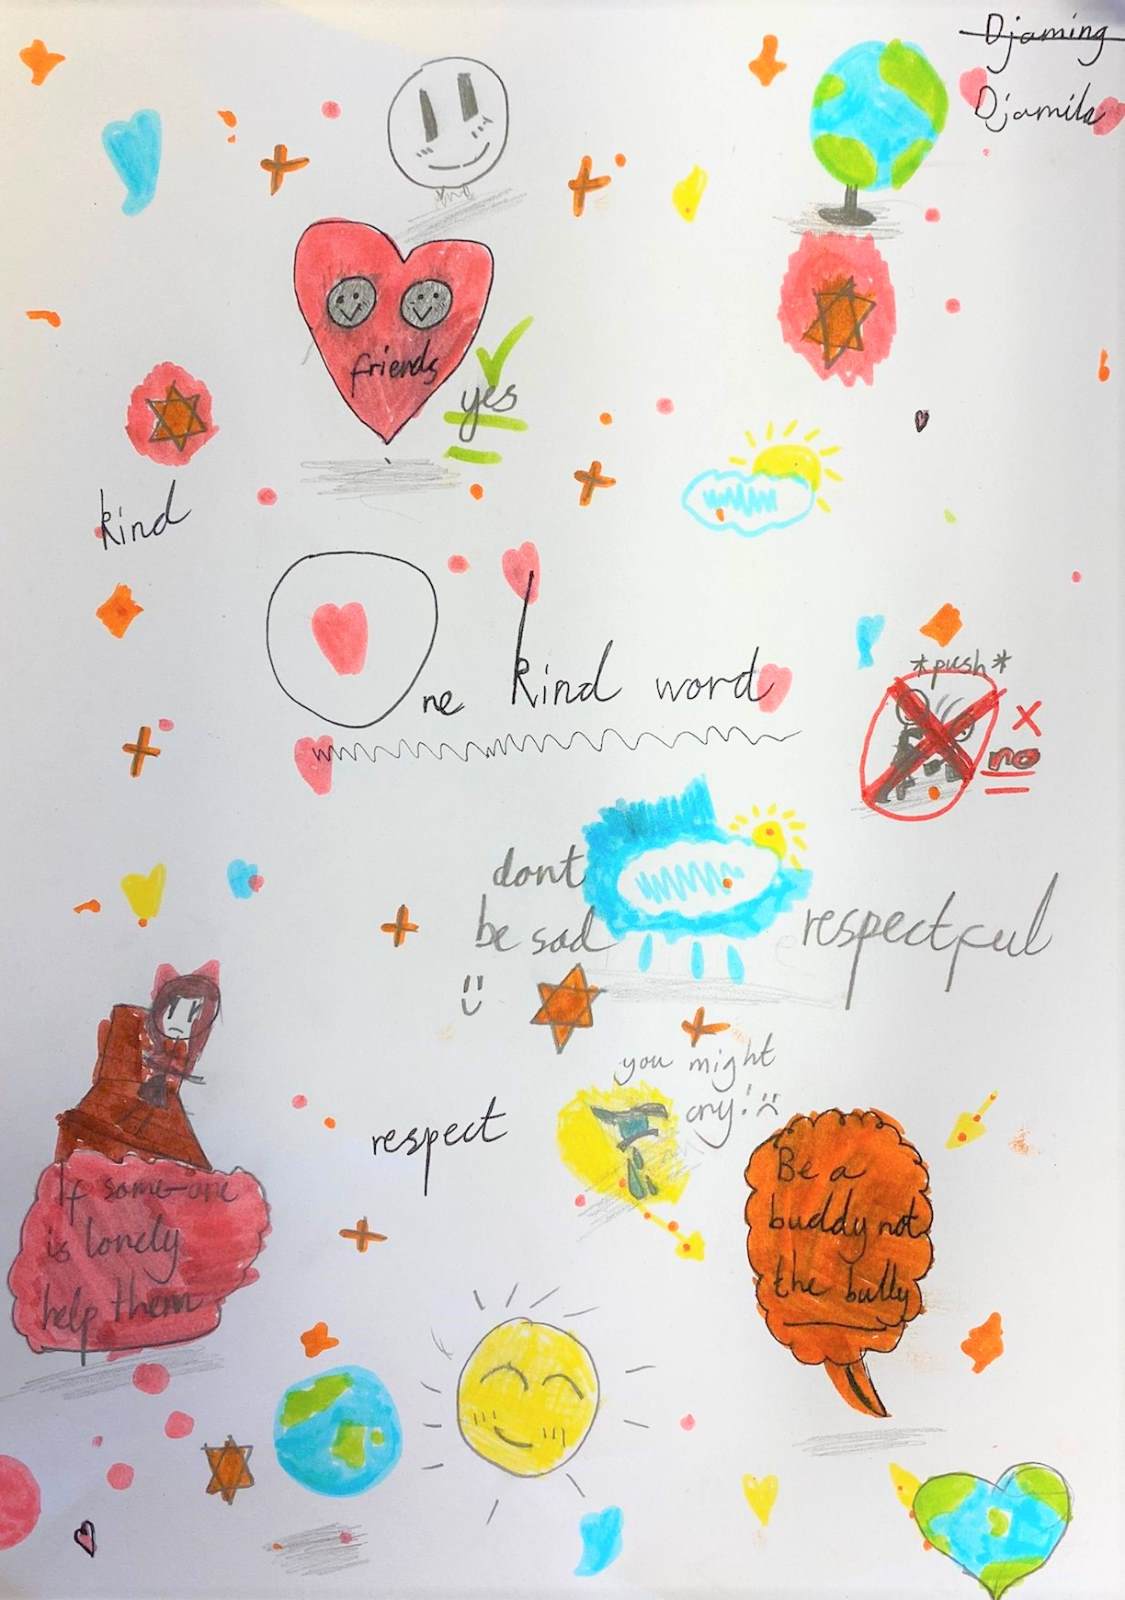 Djaming
Djamila
friends
yes
kind
One kind word
*push*
x
no
dont
be sad
respectful
you might
cry!
respect
If some-one
is lonely
help them
Be a
buddy not
the bully